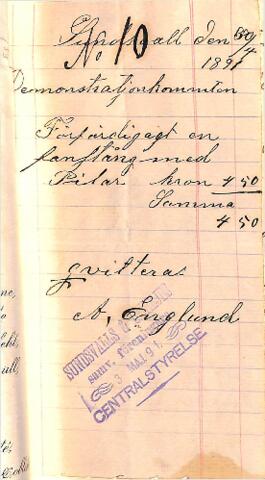 Sundsvall den 30/4
No 10
1891
Demonstrationkommiten
Förfärdigagt en
fanstång med
Pilar kron 4 50
Somma
4 50
qvitteras
A, Englund
SUNDSVALLS
samv. förenin
3 MAJ 91
CENTRALSTYRELSE